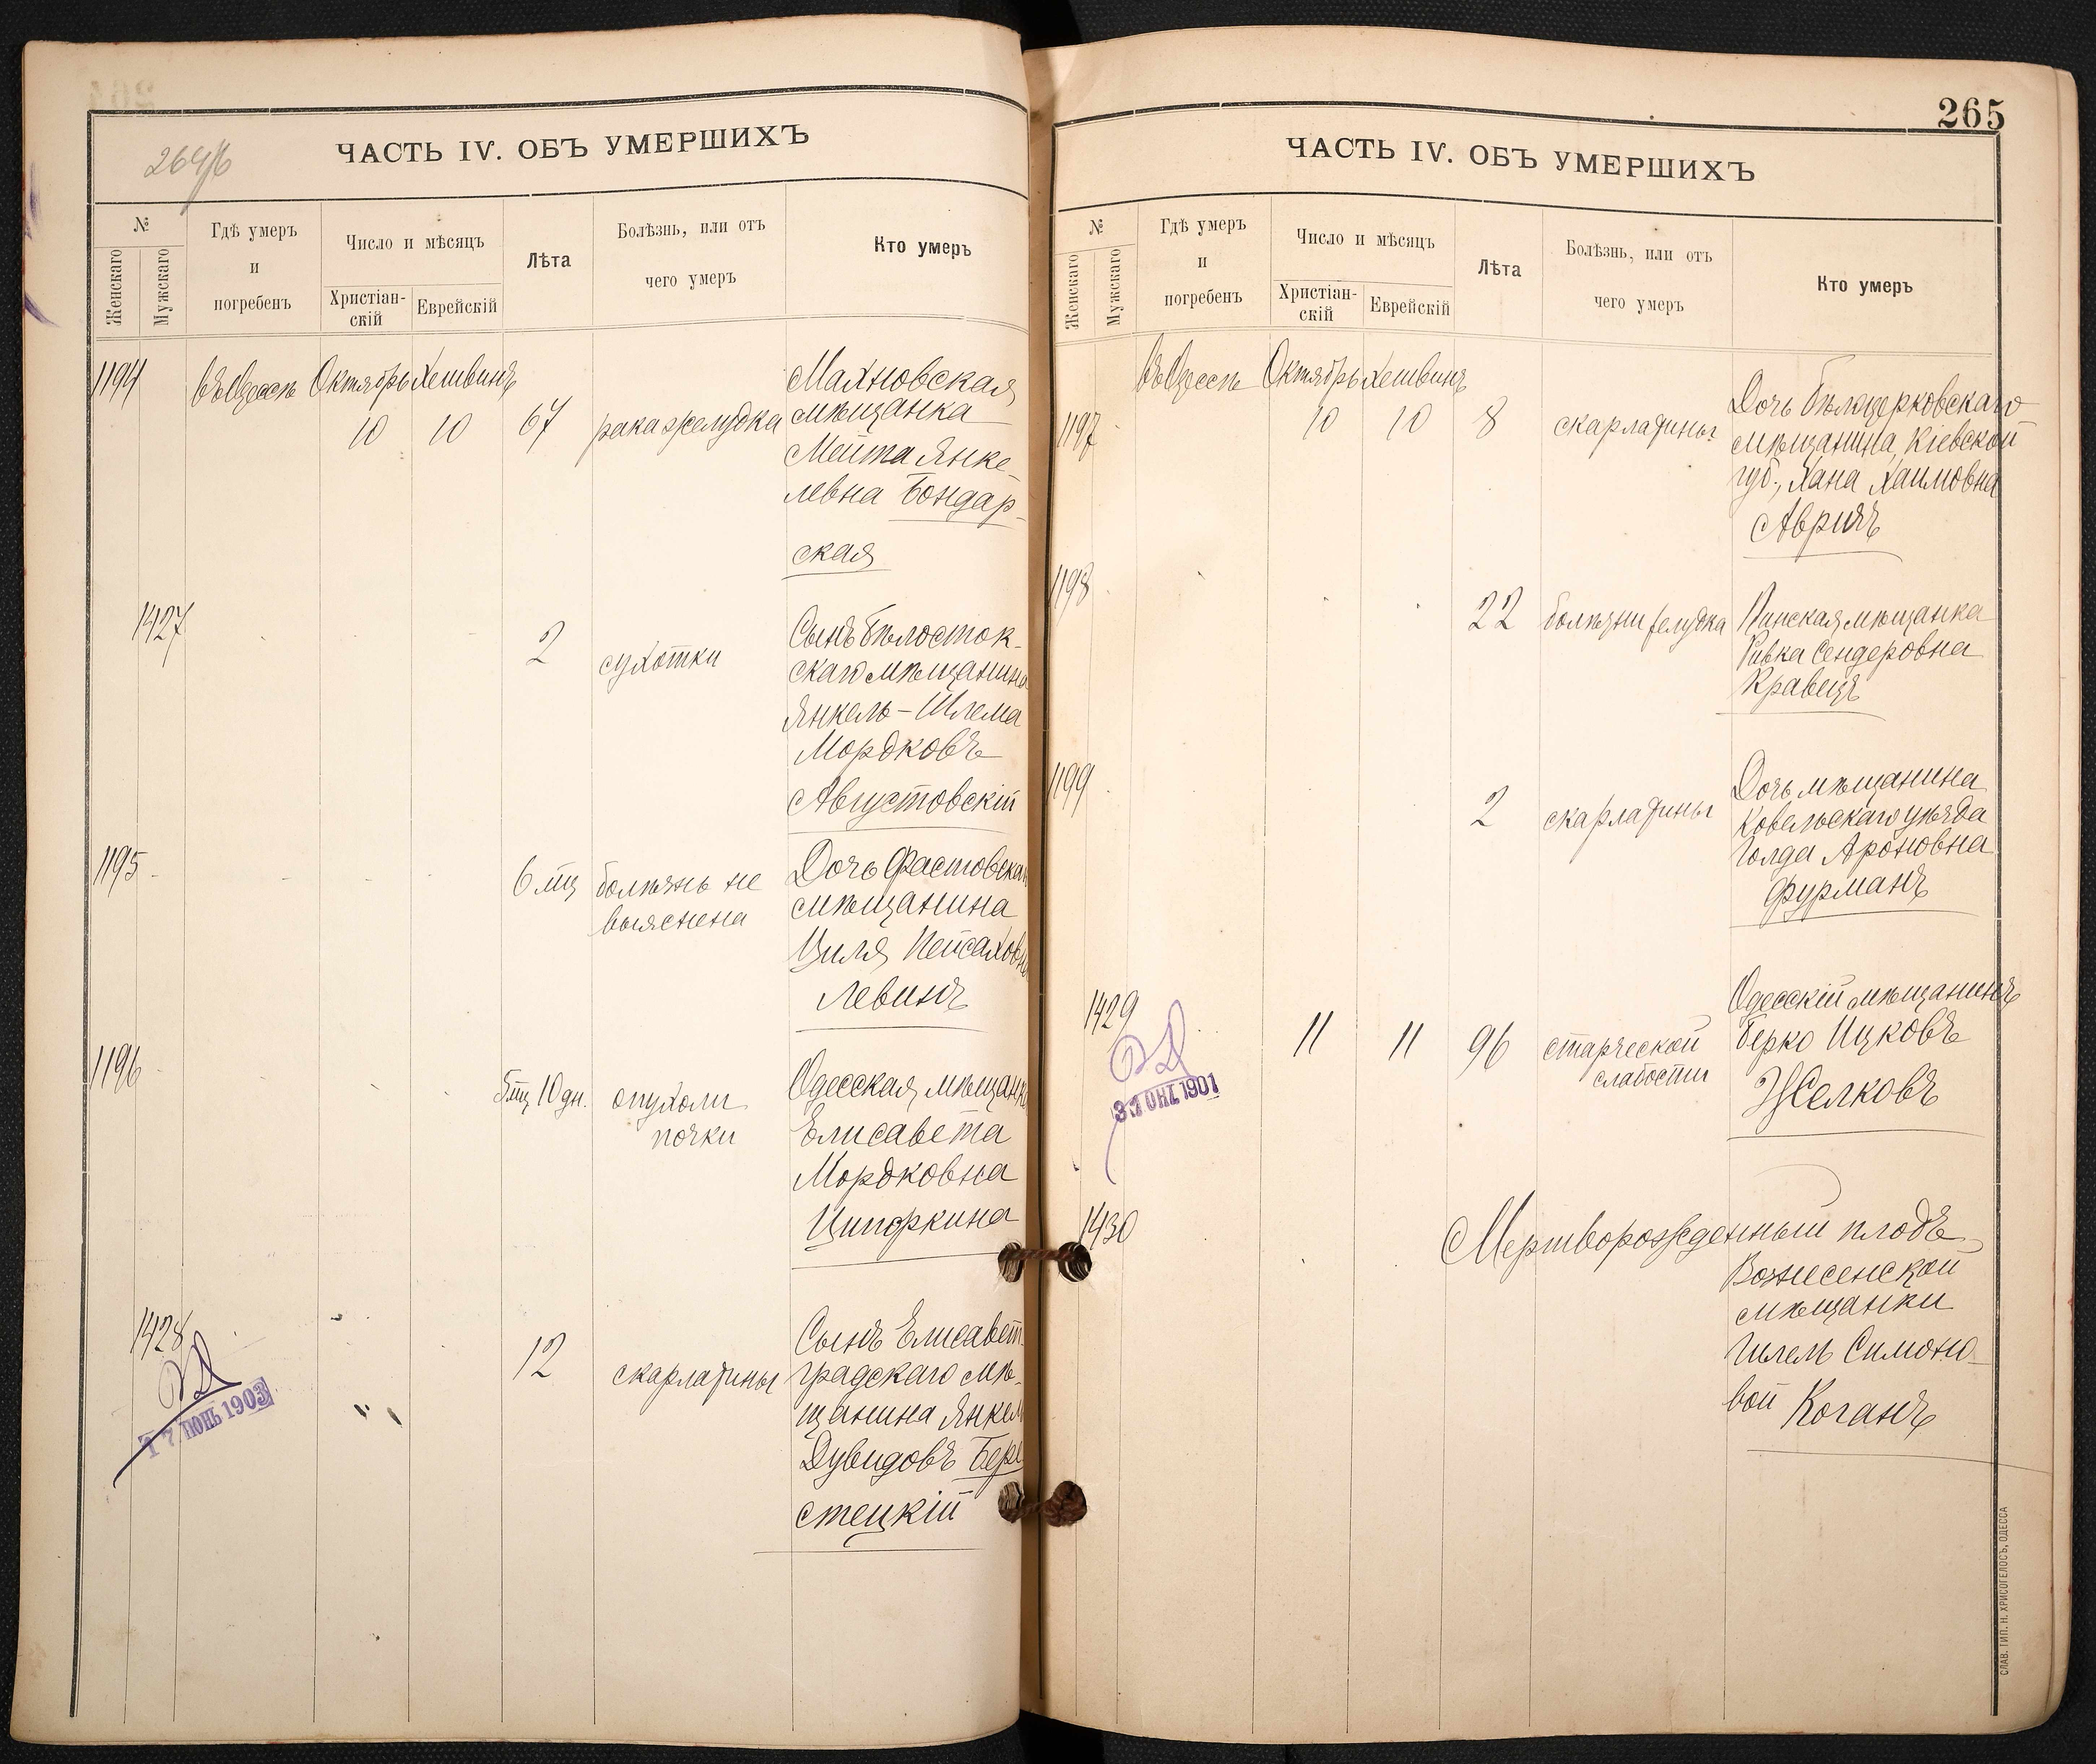 264/б
ЧАСТЬ IV. ОБЪ УМЕРШИХЪ
№
Женскаго
Мужскаго
Гдѣ умеръ
и
погребенъ
Число и мѣсяцъ
Христіан-
скій
Еврейскій
Лѣта
Болѣзнь, или отъ
чего умеръ
Кто умеръ
1194
въ Одессѣ Октябрь Хешвинъ
10 10 67 рака желудка
Махновская
мѣщанка
Мейта Янке-
левна Бондар-
ская
1427
2 сухотки
Сынъ Бѣлосток-
скаго мѣщанина
Янкель-Шлема
Мордковъ
Августовскій
1195
6 мц болѣзнь не
выяснена
Дочь Фастовскаго
мѣщанина
Циля Пейсаховна
Левинъ
1196
5 мц 10 дн. опухоли
почки
Одесская мѣщанка
Елисавета
Мордковна
Ципоркина
1428
17 ІЮНЬ 1903
12 скарлатины
Сынъ Елисавет-
градскаго мѣ-
щанина Янкель
Дувидовъ Бере-
стецкій
265
ЧАСТЬ IV. ОБЪ УМЕРШИХЪ
№
Женскаго
Мужскаго
Гдѣ умеръ
и
погребенъ
Число и мѣсяцъ
Христіан-
скій
Еврейскій
Лѣта
Болѣзнь, или отъ
чего умеръ
Кто умеръ
въ Одессѣ Октябрь Хешвинъ
1197
10 10 8 скарлатины
Дочь Бѣлоцерковскаго
мѣщанина, Кіевской
губ., Хана Хаимовна
Авринъ
1198
22 болѣзни желудка
Пинская мѣщанка
Ривка Сендеровна
Кравецъ
1199
2 скарлатины
Дочь мѣщанина
Ковельскаго уѣзда
Голда Ароновна
Фурманъ
1429
31 ОКТ 1901
11 11 96 старческой
слабости
Одесскій мѣщанинъ
Берко Ицковъ
Желковъ
1430
Мертворожденный плодъ
Вознесенской
мѣщанки
Симоно-
вой Коганъ
СЛАВ. ТИП. Н. ХРИСОГЕЛОСЪ, ОДЕССА